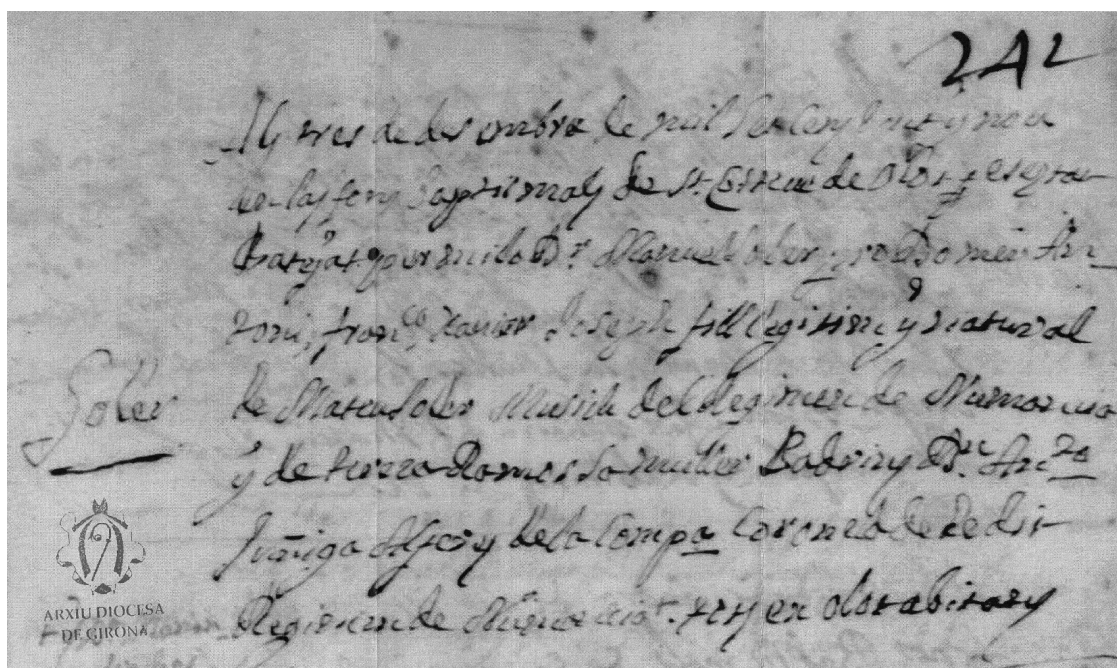 242
Als tres de desembre de mil set cents vint y nou
en las fonts baptismals de St. Esteve de Olot
Batejat per mi lo Dr. Manuel Soler pre Domer An-
toni, Franco, Xavier Joseph fill llegitim y natural
Soler
de Mateu Soler Musich del Regiment de Numancia
y de Teresa Ramos sa muller Padrins Dn. Anto
Zuñiga Alferes de la Compa Coronela de dit
Regiment de Numancia
ARXIU DIOCESÀ
DE GIRONA